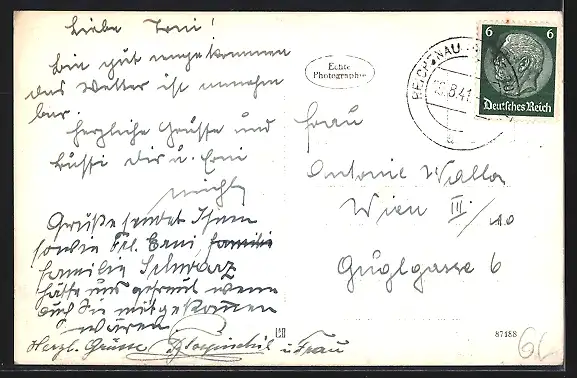 Liebe Toni!
Bin gut angekommen
das Wetter ist unnehm
bar.
Herzliche Grüsse und
Bussi dir u. Erni
Grüße sendet Ihnen
sowie Frl. Erni
Familie Schwarz
hätte uns gefreut wenn
auch Sie mitgekommen
wären.
Herzl. Grüsse u. Frau
Echte
Photographie
REICHENAU
.8.41
6 6
Deutsches Reich
Frau
Antonie Walla
Wien III/40
Guglgasse 6
87188